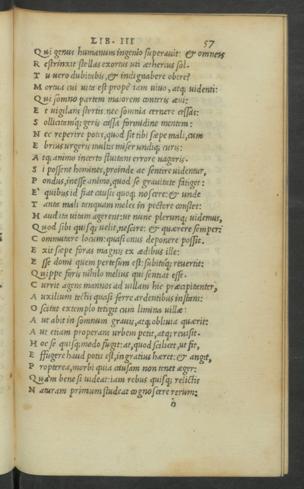 LIB. III 57
Qui genus humanum ingenio superauit: & omneis
Restrinxit stellas exortus uti ætherius sol.
Tu uero dubitabis, & indignabere obire?
Mortua cui uita est prope iam uiuo, atq; uidenti:
Qui somno partem maiorem conteris æui:
Et uigilans stertis: nec somnia cernere cessas:
Sollicitamq; geris cassa formidine mentem:
Nec reperire potes, quod sit tibi sæpe mali, cum
Ebrius urgeris multis miser undiq; curis:
Atq; animo incerto fluitans errore uagaris.
Si possent homines, proinde ac sentire uidentur,
Pondus, inesse animo, quod se grauitate fatiget:
E' quibus id fiat causis quoq; noscere: & unde
Tanta mali tanquam moles in pectore constet:
Haud ita uitam agerent: ut nunc plerunq; uidemus,
Quod sibi quisq; uelit, nescire: & quærere semper:
Commutare locum: quasi onus deponere possit.
Exit sæpe foras magnis ex ædibus ille:
Esse domi quem pertesum est: subitoq; reuertit:
Quippe foris nihilo melius qui sentiat esse.
Currit agens mannos ad uillam hic præcipitanter,
Auxilium tectis quasi ferre ardentibus instans:
Oscitat extemplo tetigit cum limina uillæ:
Aut abit in somnum grauis, atq; obliuia quærit:
Aut etiam properans urbem petit, atq; reuisit.
Hoc se quisq; modo fugit: at, quod scilicet, ut fit,
Effugere haud potis est, ingratius hæret: & angit,
Propterea, morbi quia causam non tenet æger:
Quam bene si uideat: iam rebus quisq; relictis
Naturam primum studeat cognoscere rerum: